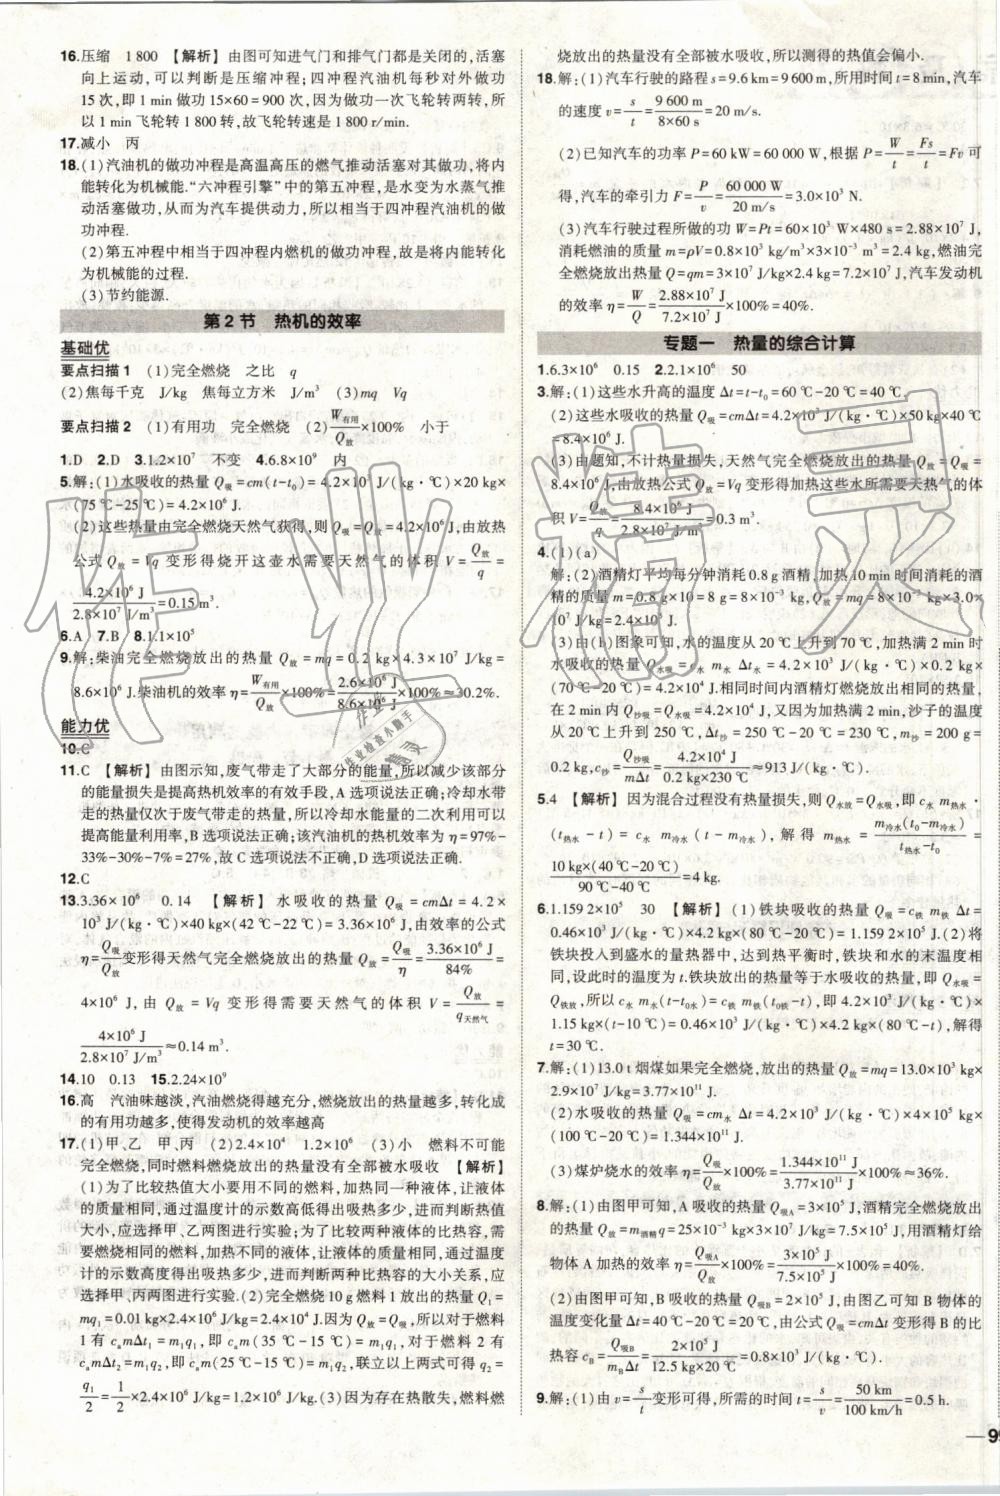 16.压缩 1 800 【解析】由图可知进气门和排气门都是关闭的,活塞
向上运动,可以判断是压缩冲程;四冲程汽油机每秒对外做功
15次,即1 min做功15×60=900次,因为做功一次飞轮转两转,所
以1 min飞轮转1 800转,故飞轮转速是1 800 r/min.
17.减小 丙
18.(1)汽油机的做功冲程是高温高压的燃气推动活塞对其做功,将内
能转化为机械能.“六冲程引擎”中的第五冲程,是水变为水蒸气推
动活塞做功,从而为汽车提供动力,所以相当于四冲程汽油机的做
功冲程.
(2)第五冲程中相当于四冲程内燃机的做功冲程,故是将内能转化
为机械能的过程.
(3)节约能源.
第2节 热机的效率
基础优
要点扫描1 (1)完全燃烧 之比 q
(2)焦每千克 J/kg 焦每立方米 J/m³ (3)mq Vq
要点扫描2 (1)有用功 完全燃烧 (2)W有用/Q放×100% 小于
1.D 2.D 3.1.2×10⁷ 不变 4.6.8×10⁹ 内
5.解:(1)水吸收的热量Q吸=cm(t-t₀)=4.2×10³ J/(kg·℃)×20 kg×
(75 ℃-25 ℃)=4.2×10⁶ J.
(2)这些热量由完全燃烧天然气获得,则Q吸=Q放=4.2×10⁶ J,由放热
公式Q放=Vq变形得烧开这壶水需要天然气的体积V=Q放/q=
4.2×10⁶ J/2.8×10⁷ J/m³=0.15 m³.
6.A 7.B 8.1.1×10⁵
9.解:柴油完全燃烧放出的热量Q放=mq=0.2 kg×4.3×10⁷ J/kg=
8.6×10⁶ J.柴油机的效率η=W有用/Q放×100%=2.6×10⁶ J/8.6×10⁶ J×100%≈30.2%.
能力优
10.C
11.C 【解析】由图示知,废气带走了大部分的能量,所以减少该部分
的能量损失是提高热机效率的有效手段,A选项说法正确;冷却水带
走的热量仅次于废气带走的热量,所以冷却水能量的二次利用可以
提高能量利用率,B选项说法正确;该汽油机的热机效率为η=97%-
33%-30%-7%=27%,故C选项说法不正确,D选项说法正确.
12.C
13.3.36×10⁶ 0.14 【解析】水吸收的热量Q吸=cmΔt=4.2×
10³ J/(kg·℃)×40 kg×(42 ℃-22 ℃)=3.36×10⁶ J,由效率的公式
η=Q吸/Q放变形得天然气完全燃烧放出的热量Q放=Q吸/η=3.36×10⁶ J/84%=
4×10⁶ J,由Q放=Vq变形得需要天然气的体积V=Q放/q天然气=
4×10⁶ J/2.8×10⁷ J/m³≈0.14 m³.
14.10 0.13 15.2.24×10⁹
16.高 汽油味越淡,汽油燃烧得越充分,燃烧放出的热量越多,转化成
的有用功越多,使得发动机的效率越高
17.(1)甲、乙 甲、丙 (2)2.4×10⁴ 1.2×10⁶ (3)小 燃料不可能
完全燃烧,同时燃料燃烧放出的热量没有全部被水吸收 【解析】
(1)为了比较热值大小要用不同的燃料,加热同一种液体,让液体
的质量相同,通过温度计的示数高低得出吸热多少,进而判断热值
大小,应选择甲、乙两图进行实验;为了比较两种液体的比热容,需
要燃烧相同的燃料,加热不同的液体,让液体的质量相同,通过温度
计的示数高度得出吸热多少,进而判断两种比热容的大小关系,应
选择甲、丙两图进行实验.(2)完全燃烧10 g燃料1放出的热量Q₁=
mq₁=0.01 kg×2.4×10⁶ J/kg=2.4×10⁴ J.因为Q放=Q吸,所以对于燃料
1有cₐmΔt₁=m₁q₁,即cₐm(35 ℃-15 ℃)=m₁q₁,对于燃料2有
cₐmΔt₂=m₁q₂,即cₐm(25 ℃-15 ℃)=m₁q₂,联立以上两式可得q₂=
q₁/2=1/2×2.4×10⁶ J/kg=1.2×10⁶ J/kg.(3)因为存在热散失,燃料燃
烧放出的热量没有全部被水吸收,所以测得的热值会偏小.
18.解:(1)汽车行驶的路程s=9.6 km=9 600 m,所用时间t=8 min,汽车
的速度v=s/t=9 600 m/8×60 s=20 m/s.
(2)已知汽车的功率P=60 kW=60 000 W,根据P=W/t=Fs/t=Fv可
得,汽车的牵引力F=P/v=60 000 W/20 m/s=3.0×10³ N.
(3)汽车行驶过程所做的功W=Pt=60×10³ W×480 s=2.88×10⁷ J,
消耗燃油的质量m=ρV=0.8×10³ kg/m³×3×10⁻³ m³=2.4 kg,燃油完
全燃烧放出热量Q=qm=3×10⁷ J/kg×2.4 kg=7.2×10⁷ J,汽车发动机
的效率η=W/Q=2.88×10⁷ J/7.2×10⁷ J×100%=40%.
专题一 热量的综合计算
1.6.3×10⁶ 0.15 2.2.1×10⁶ 50
3.解:(1)这些水升高的温度Δt=t-t₀=60 ℃-20 ℃=40 ℃.
(2)这些水吸收的热量Q吸=cmΔt=4.2×10³ J/(kg·℃)×50 kg×40 ℃
=8.4×10⁶ J.
(3)由题知,不计热量损失,天然气完全燃烧放出的热量Q放=Q吸=
8.4×10⁶ J,由放热公式Q放=Vq变形得加热这些水所需要天然气的体
积V=Q放/q=8.4×10⁶ J/2.8×10⁷ J/m³=0.3 m³.
4.(1)(a)
解:(2)酒精灯平均每分钟消耗0.8 g酒精,加热10 min时间消耗的酒
精的质量m=0.8 g×10=8 g=8×10⁻³ kg,Q放=mq=8×10⁻³ kg×3.0×
10⁷ J/kg=2.4×10⁵ J.
(3)由(b)图象可知,水的温度从20 ℃上升到70 ℃,加热满2 min时
水吸收的热量Q水吸=c水m水Δt水=4.2×10³ J/(kg·℃)×0.2 kg×
(70 ℃-20 ℃)=4.2×10⁴ J.相同时间内酒精灯燃烧放出相同的热量,
在2 min内Q沙吸=Q水吸=4.2×10⁴ J,又因为加热满2 min,沙子的温度
从20 ℃上升到250 ℃,Δt沙=250 ℃-20 ℃=230 ℃,m沙=200 g=
0.2 kg,c沙=Q沙吸/mΔt=4.2×10⁴ J/0.2 kg×230 ℃≈913 J/(kg·℃).
5.4 【解析】因为混合过程没有热量损失,则Q水放=Q水吸,即c水m热水·
(t热水-t)=c水m冷水(t-t冷水),解得m热水=m冷水(t₀-t冷水)/t热水-t₀=
10 kg×(40 ℃-20 ℃)/90 ℃-40 ℃=4 kg.
6.1.159 2×10⁵ 30 【解析】(1)铁块吸收的热量Q吸=c铁m铁Δt=
0.46×10³ J/(kg·℃)×4.2 kg×(80 ℃-20 ℃)=1.159 2×10⁵ J.(2)将
铁块投入到盛水的量热器中,达到热平衡时,铁块和水的末温度相
同,设此时的温度为t.铁块放出的热量等于水吸收的热量,即Q水吸=
Q铁放,所以c水m水(t-t₀水)=c铁m铁(t₀铁-t),即4.2×10³ J/(kg·℃)×
1.15 kg×(t-10 ℃)=0.46×10³ J/(kg·℃)×4.2 kg×(80 ℃-t),解得
t=30 ℃.
7.解:(1)13.0 t烟煤如果完全燃烧,放出的热量Q放=mq=13.0×10³ kg
×2.9×10⁷ J/kg=3.77×10¹¹ J.
(2)水吸收的热量Q吸=cm水Δt=4.2×10³ J/(kg·℃)×4×10⁵ kg×
(100 ℃-20 ℃)=1.344×10¹¹ J.
(3)煤炉烧水的效率η=Q吸/Q放×100%=1.344×10¹¹ J/3.77×10¹¹ J×100%≈36%.
8.解:(1)由图甲可知,A吸收的热量Q吸A=3×10⁵ J,酒精完全燃烧放出
的热量Q放=m酒精q=25×10⁻³ kg×3×10⁷ J/kg=7.5×10⁵ J,用酒精灯给
物体A加热的效率η=Q吸A/Q放×100%=3×10⁵ J/7.5×10⁵ J×100%=40%.
(2)由图甲可知,B吸收的热量Q吸B=2×10⁵ J,由图乙可知B物体的
温度变化量Δt=40 ℃-20 ℃=20 ℃,由公式Q吸=cmΔt变形得B的比
热容c_B=Q吸B/m_BΔt=2×10⁵ J/12.5 kg×20 ℃=0.8×10³ J/(kg·℃).
9.解:(1)由v=s/t变形可得,所需的时间t=s/v=50 km/100 km/h=0.5 h.
作业精灵